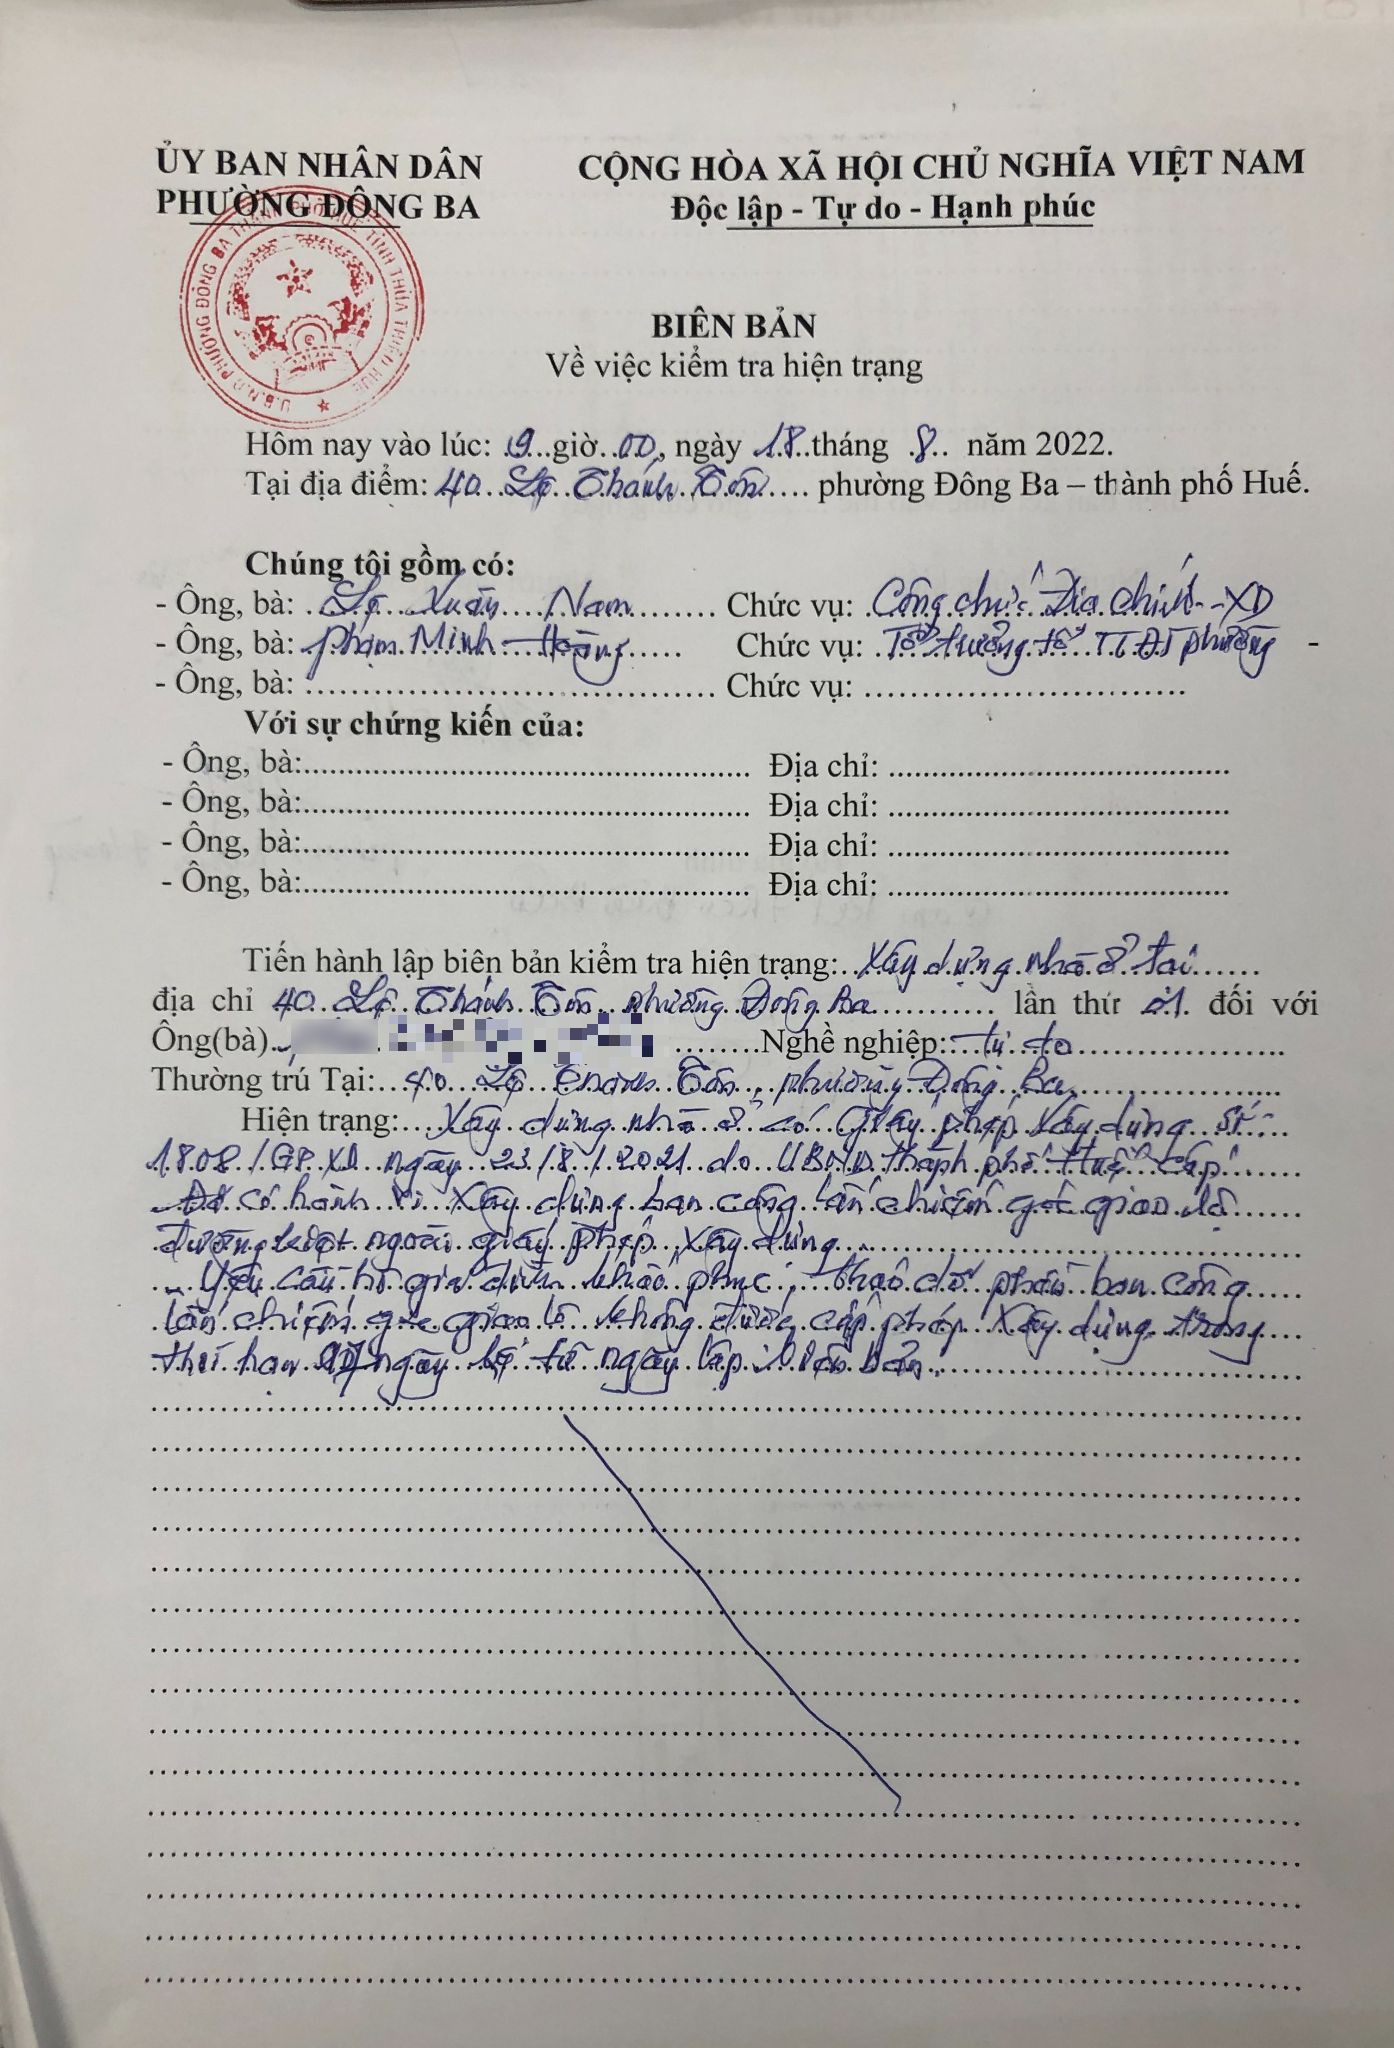 ỦY BAN NHÂN DÂN
PHƯỜNG ĐÔNG BA
CỘNG HÒA XÃ HỘI CHỦ NGHĨA VIỆT NAM
Độc lập - Tự do - Hạnh phúc
U.B.N.D PHƯỜNG ĐÔNG BA THÀNH PHỐ HUẾ TỈNH THỪA THIÊN HUẾ
BIÊN BẢN
Về việc kiểm tra hiện trạng
Hôm nay vào lúc: 9 giờ 00, ngày 18 tháng 8 năm 2022.
Tại địa điểm: 40 Lê Thánh Tôn phường Đông Ba – thành phố Huế.
Chúng tôi gồm có:
- Ông, bà: Lê Xuân Nam Chức vụ: Công chức Địa chính - XD
- Ông, bà: Phạm Minh Hoàng Chức vụ: Tổ trưởng tổ TTĐT phường -
- Ông, bà: Chức vụ:
Với sự chứng kiến của:
- Ông, bà: Địa chỉ:
- Ông, bà: Địa chỉ:
- Ông, bà: Địa chỉ:
- Ông, bà: Địa chỉ:
Tiến hành lập biên bản kiểm tra hiện trạng: Xây dựng nhà ở tại
địa chỉ 40 Lê Thánh Tôn phường Đông Ba lần thứ 01 đối với
Ông(bà) Nghề nghiệp: tự do
Thường trú Tại: 40 Lê Thánh Tôn, phường Đông Ba
Hiện trạng: Xây dựng nhà ở có Giấy phép Xây dựng số:
1808/GPXD ngày 23/8/2021 do UBND thành phố Huế cấp
Đã có hành vi Xây dựng ban công lấn chiếm góc giao lộ
đường kiệt ngoài giấy phép Xây dựng.
Yêu cầu hộ gia đình khắc phục, tháo dỡ phần ban công
lấn chiếm góc giao lộ không được cấp phép Xây dựng trong
thời hạn 07 ngày kể từ ngày lập biên bản.